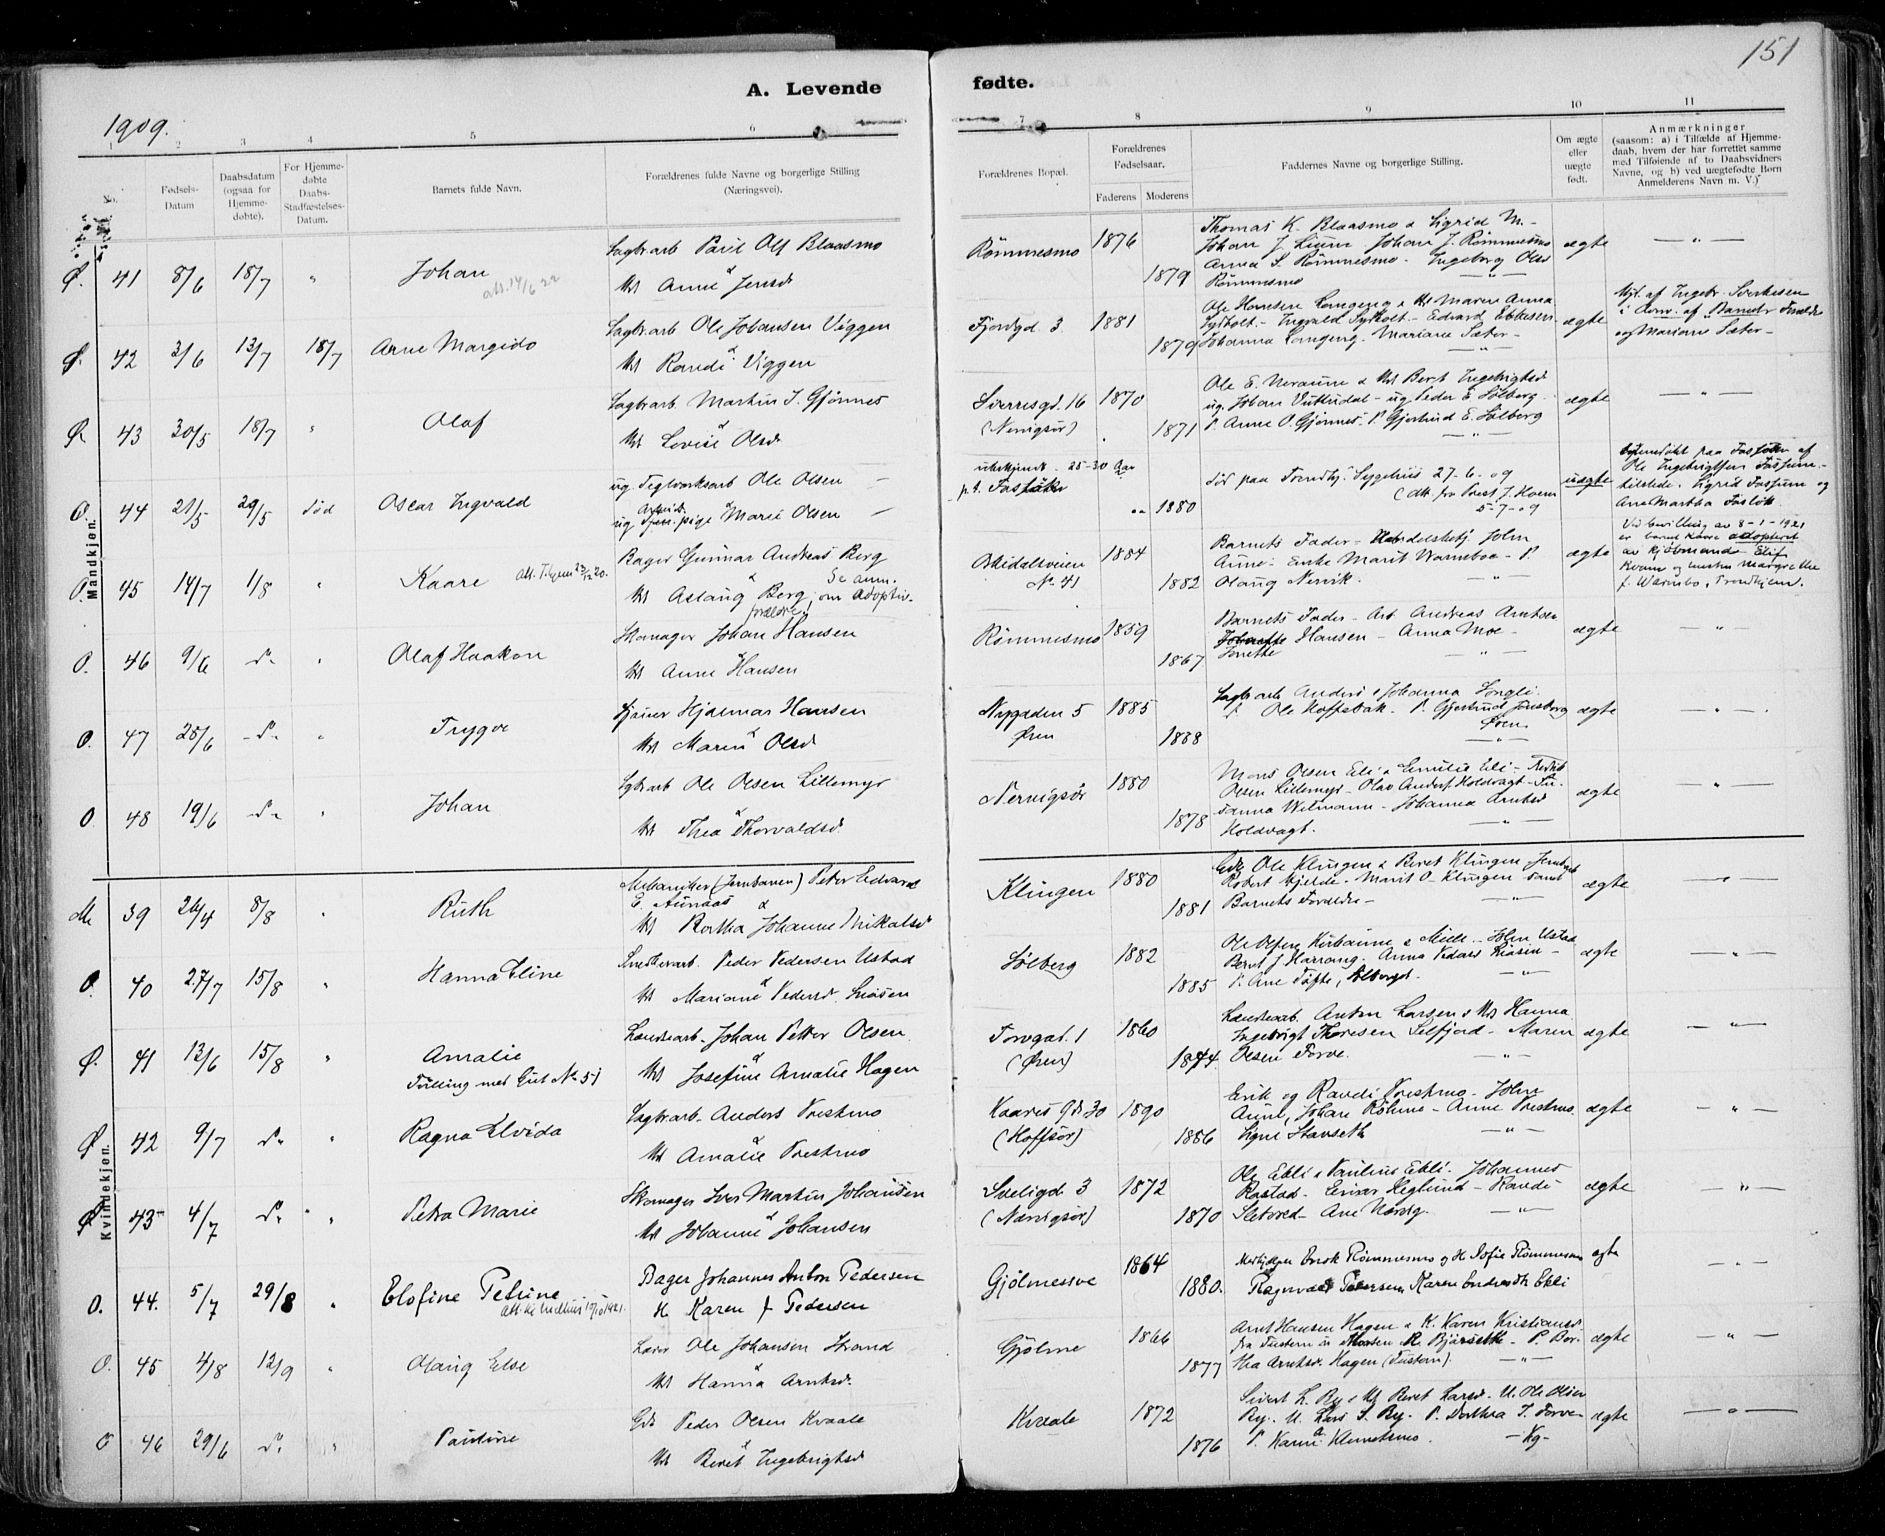 151
A. Levende fødte.
1909.
1 2 3 4 5 6 7 8 9 10 11
No.
Fødsels-Datum
Daabsdatum (ogsaa for Hjemmedøbte).
For Hjemmedøbte Daabs-Stadfæstelses-Datum.
Barnets fulde Navn.
Forældrenes fulde Navne og borgerlige Stilling (Næringsvei).
Forældrenes Bopæl.
Forældrenes Fødselsaar.
Faderens Moderens
Faddernes Navne og borgerlige Stilling.
Om ægte eller uægte født.
Anmærkninger
(saasom: a) i Tilfælde af Hjemmedaab, hvem der har forrettet samme med Tilføiende af to Daabsvidners Navne, og b) ved uægtefødte Børn Anmelderens Navn m. V.)
Mandkjøn.
Ø. 41 8/6 18/7 " Johan
att. 14/6 22
Sagbrarb Paul Olf Blaasmo
&
Ks Anne Jensd
Rømmesmo 1876 1879
Thomas K. Blaasmo & Sigrid M. -
Johan J. Lium Johan J. Rømmesmo
Anna S. Rømmesmo - Ingeborg Olsd
Rømmesmo
ægte — " —
Ø. 42 3/6 13/7 18/7 Arne Margido
Sagbrarb Ole Johansen Viggen
&
Ks Randi Viggen
Fjordgd 3 1881 1879
Ole Hansen Langeng & Ks Maren Anna
Sydholt - Ingvald Sydholt - Edvard Ebbesen
Johanna Langeng. Mariane Sæter -
ægte
Hjt. af Ingebr. Sverkesen
i Overv. af Barnets Forældre
og Mariane Sæter -
Ø 43 30/5 18/7 " Olaf
Sagbrarb. Martin I. Gjønnes
&
Ks Lovise Olsd
Sverresgd. 16 (Nervigsør) 1870 1871
Ole E. Neraune & Ks Berit Ingebrigtsd
ug. Johan Vuttudal - ug Peder E. Solberg
P. Anne O. Gjønnes - P. Gjertrud E. Solberg
ægte — " —
O. 44 21/5 29/5 død Oscar Ingvald
ug. Teglverksarb Ole Olsen —
ug Arbeids pige Marie Olsen —
ubekjendt 25-30 Aar
1880
død paa Trondhj. Sygehus 27-6-09
(att. fra Prest J. Hoem
5-7-09
uægte
Ole Ingebrigtsen Fossum -
tilstede. Sigrid Fossum og
Ane Martha
O. 45 14/7 1/8 " Kaare
Bager Gunnar Andreas Berg
&
Ks Aslaug Berg
Se anm. om adoptivforældre!
Orkidalsveien No. 41 1884 1882
Barnets Fader - Handelsbetj. John
Aune - Enke Marit Warmboe - P
Olaug Nervik.
ægte
Ved bevilling av 8-1-1921
er barnet Kaare adopteret
av kjøbmand Elif
Kvam og hustru Margrethe
f. Warmbo, Trondhjem.
O. 46 9/6 d. " Olaf Haakon
Skomager Johan Hansen
&
Ks Anne Hansen
Rømmesmo 1859 1867
Barnets Fader - Arb Andreas Arntsen
Jonette Hansen - Anna Moe -
ægte — " —
O. 47 28/6 d. " Trygve
Hjalmar Hansen
&
Ks Marie Olsd
Nygaden 5 Øren 1885 1888
Sagbrarb Anders & Johanna Songli.
Ole Hoffsbak. P. Gjertrud Jensberg
Øren.
ægte — " —
O 48 19/6 d. " Johan
Sgbrarb Ole Olsen Lillemyr
&
Ks Thea Thorvaldsd
Nervigsør 1880 1878
Mons Olsen Eli & Emilie Eli -
Olsen Lillemyr - Olav Anders. Holdvagt - Su-
sanna Wetmann - Johanna Arntsd
Holdvagt.
ægte
Kvindekjøn.
M 39 24/4 8/8 " Ruth
Mekaniker (Jernbanen) Peter Edvard
E. Aunaas &
Ks Bertha Johanne Mikalsd
Klingen 1880 1881
Gdr Ole Klingen & Beret Klingen
Robert Hjelde - Marit O. Klingen samt
Barnets Forældre -
ægte
O. 40 27/7 15/8 " Hanna Eline
Snedkerarb. Peder Pedersen Ustad
&
Ks Mariane Pedersd. Snøsen
Solberg 1882 1885
Ole Olsen - John Ustad
Bernt J. Harrang. Anna Pedersd Snøsen -
P. Ane Tofte,
ægte — " —
Ø. 41 13/6 15/8 " Amalie
Tvilling med Gut No 51
Løsarb. Johan Petter Olsen
&
Ks Josefine Amalie Hagen
Torvgat. 1 (Øren) 1860 1874.
Løsarb. Anton Larsen & Ks Hanna
Ingebrigt Thoresen Selfjord - Maren
Olsen Torve.
ægte — " —
Ø 42 9/7 d. " Ragna Elvida
Sagbrarb. Anders Prestmo
&
Ks Amalie Prestmo
Kaares Gd 30 (Hoffsør) 1890 1886
Erik og Randi Prestmo - John
Aune, Johan Rømo - Anne Prestmo.
Signe Stavseth
ægte — " —
Ø 43 4/7 d. " Petra Marie
Skomager Iver Martin Johansen
&
Ks Johanne Johansen
Sveligd 3 (Nervigsør) 1872 1870
Ole Ebli & Pauline Ebli. Johannes
Rostad - Einar Heglund - Randi
Sletvred - Ane Nervig.
ægte — " —
O. 44. 5/7 29/8 " Elofine Petrine
Bager Johannes Anton Pedersen
H Karen J Pedersen
Gjølmesøre 1864 1880.
Enok Rømmesmo og H Sofie Rømmesmo
Ragnvald Pedersen Karen Endresdt Ebli
ægte
O. 45 4/8 12/9 " Olaug Else
Lærer Ole Johansen Strand
&
Ks Hanna Arntsd.
Gjølme 1866 1877
Arnt Hansen Hagen & K. Karen Kristiansd
fra Tustern - P. Ber-
tha Arntsd. Hagen (Tustern).
ægte — " —
O 46 29/6 d. " Pauline
Gdr Peder Olsen Kvaale
&
Ks Beret Ingebrigtsd
Kvaale 1872 1876
Sivert L. By & Ks Beret Larsd. U. Ole Olsen
By. U. Lars S. By. P. Dorthea I. Torve
P. Karen Klemetsmo. — Kg -
ægte